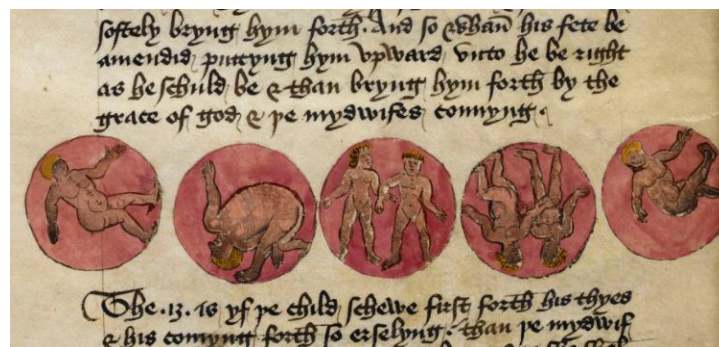 softely bryng hym forth. And so whan his fete be
amendid puttyng hym vpward vnto he be right
as he schuld be & than bryng hym forth by the
grace of god & þe mydwifes connyng.
The .13. is yf þe child schewe first forth his thyes
& his comyng forth so erselyng. than þe mydwif